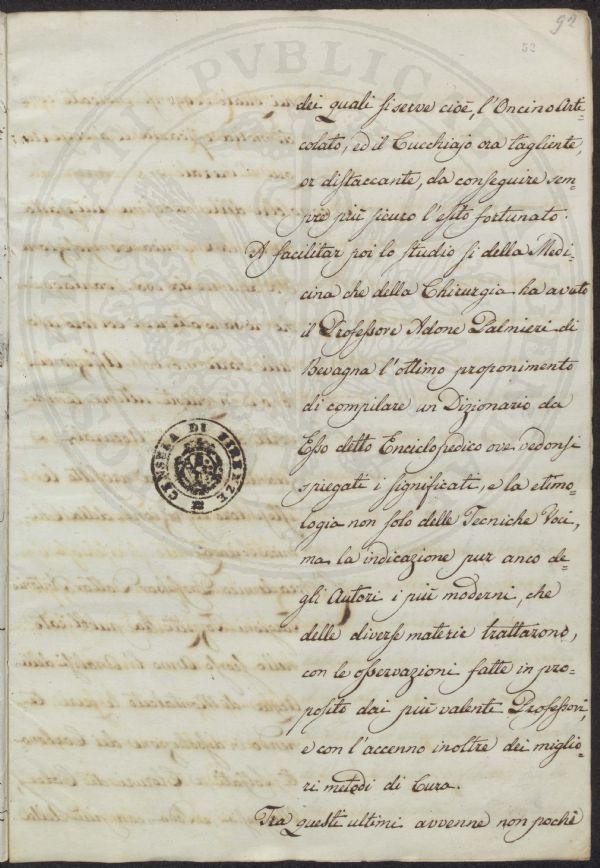 92
52
dei quali si serve cioè, l'Oncino Arti-
colato, ed il Cucchiajo ora tagliente,
or distaccante, da conseguire sem-
pre più sicuro l'esito fortunato.
A facilitar poi lo studio sì della Medi-
cina che della Chirurgia ha avuto
il Professore Adone Palmieri di
Bevagna l'ottimo proponimento
di compilare un Dizionario da
Esso detto Enciclopedico ove vedonsi
spiegati i significati, e la etimo-
logia non solo delle Tecniche Voci,
ma la indicazione pur anco de-
gli Autori i più moderni, che
delle diverse materie trattarono,
con le osservazioni fatte in pro-
posito dai più valenti Professori,
e con l'accenno inoltre dei miglio-
ri metodi di Cura.
Tra questi ultimi avvenne non pochi
CENSURA DI FIRENZE